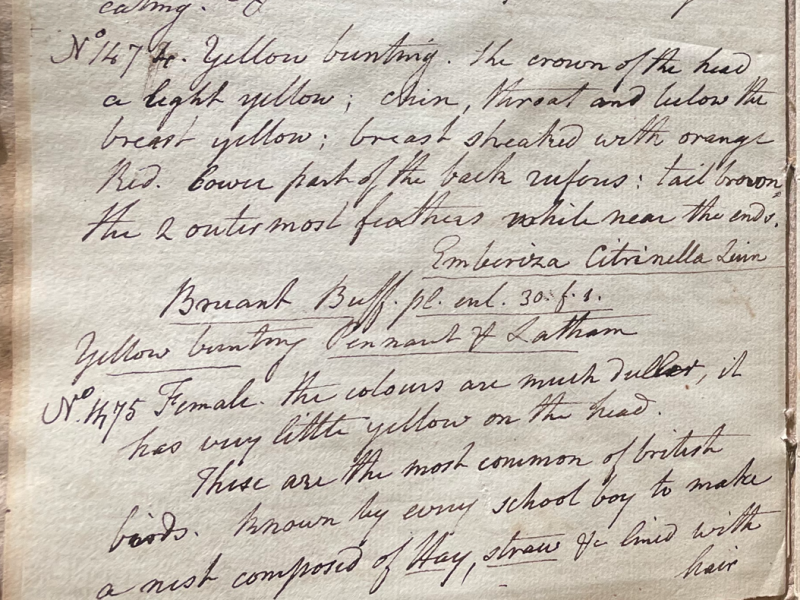 eating. &
No 1474. Yellow bunting. The crown of the head
a light yellow; chin, throat and below the
breast yellow; breast streaked with orange
Red. Lower part of the back rufous: tail brown
the 2 outermost feathers white near the ends.
Emberiza Citrinella Linn
Bruant Buff. pl. enl. 30. f. 1.
Yellow bunting Pennant & Latham
No. 1475 Female. The colours are much duller, it
has very little yellow on the head.
These are the most common of british
birds. Known by every school boy to make
a nest composed of Hay, straw &c lined with
hair